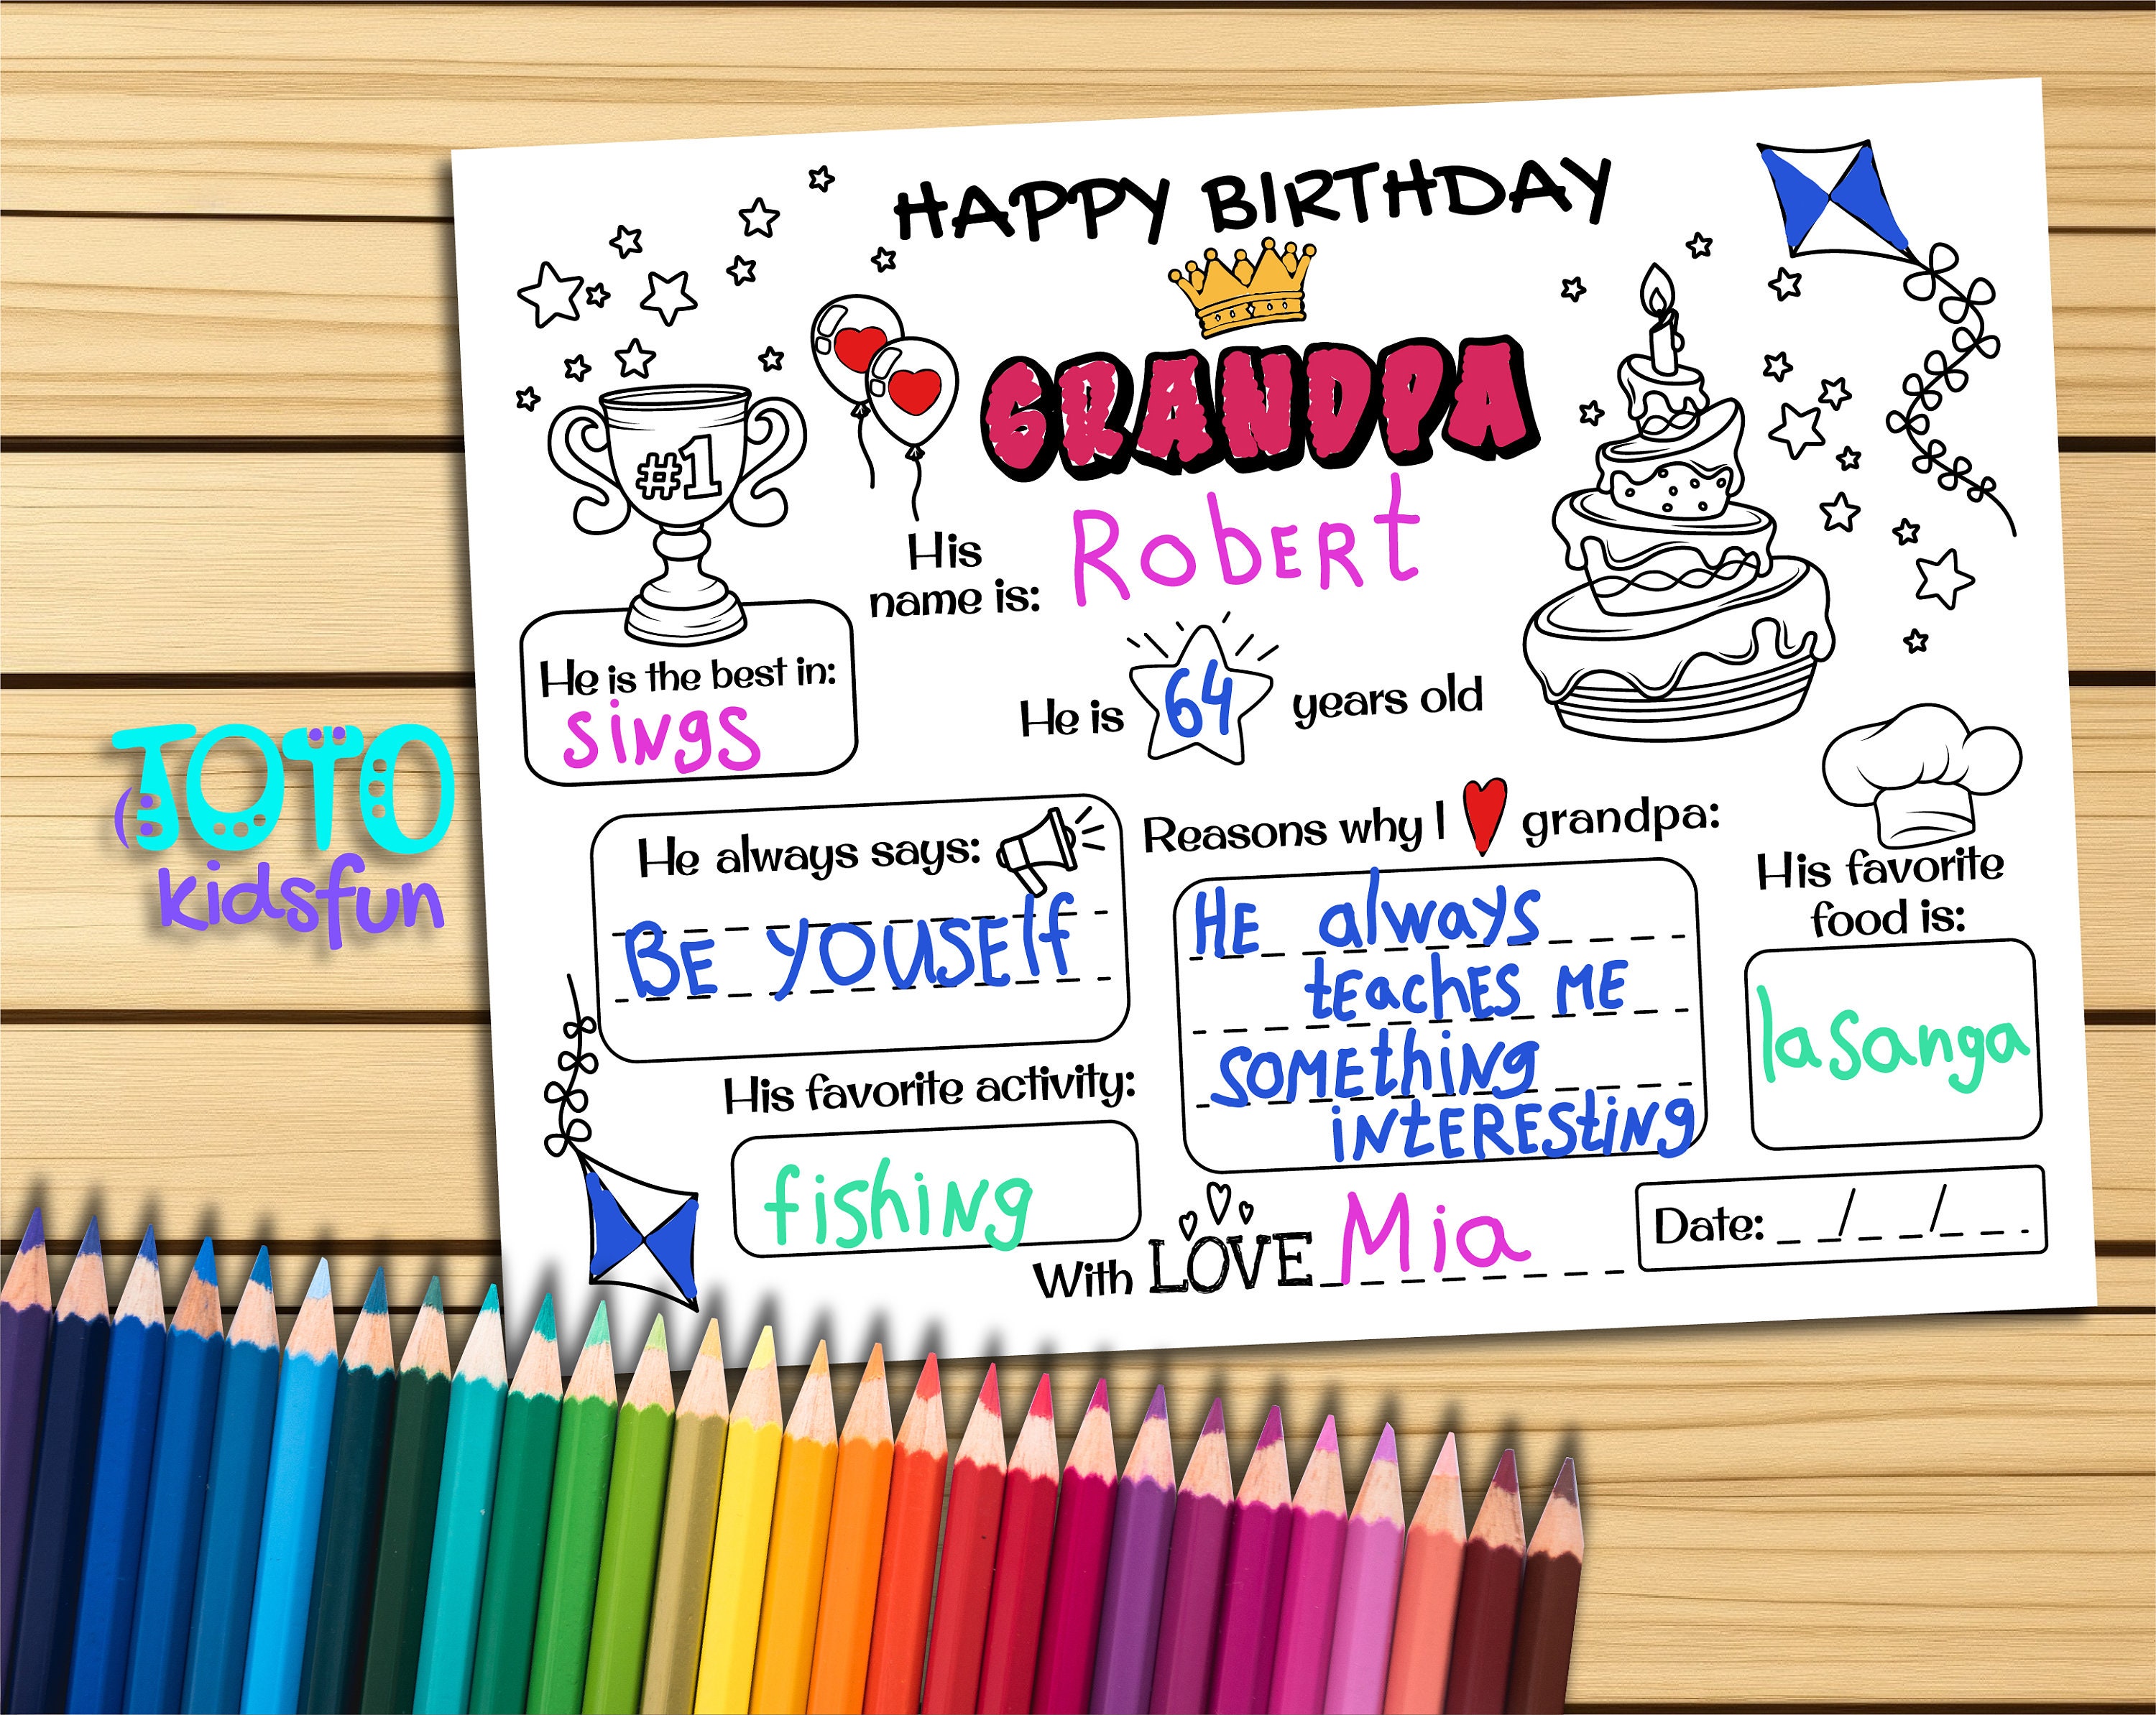 HAPPY BIRTHDAY
GRANDPA
#1
His
name is: RobERt
He is the best in:
siNgS
He is 64 years old
TOTO
kidsfun
He always says:
BE YOUSElf
Reasons why I grandpa:
HE always
tEachES ME
SOMEthiNg
iNtEREStiNg
His favorite
food is:
lasanga
His favorite activity:
fishiNg
With LOVE Mia
Date: _ _/_ _/_ _ _